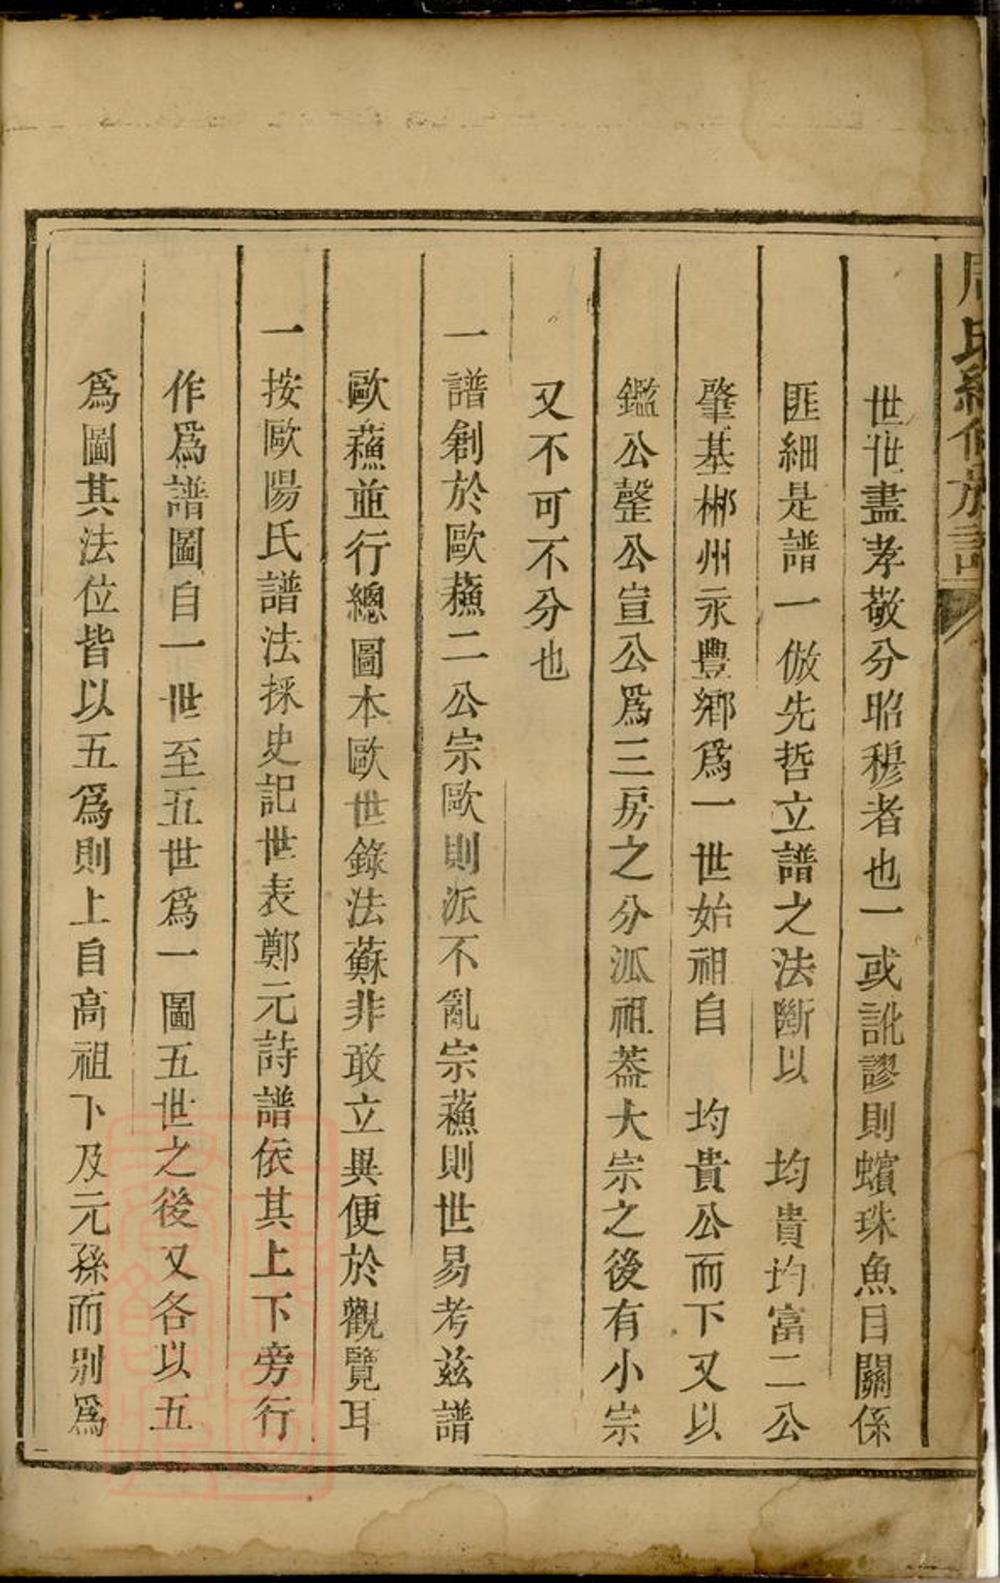 周氏續修族譜
世世盡孝敬分昭穆者也一或訛謬則蠙珠魚目關係
匪細是譜一倣先哲立譜之法斷以　均貴均富二公
肇基郴州永豐鄉爲一世始祖自　均貴公而下又以
鑑公瑩公宣公爲三房之分派祖葢大宗之後有小宗
又不可不分也
一譜創於歐蘓二公宗歐則派不亂宗蘓則世易考兹譜
歐蘓並行總圖本歐世錄法蘇非敢立異便於觀覽耳
一按歐陽氏譜法採史記世表鄭元詩譜依其上下旁行
作爲譜圖自一世至五世爲一圖五世之後又各以五
爲圖其法位皆以五爲則上自高祖下及元孫而别爲